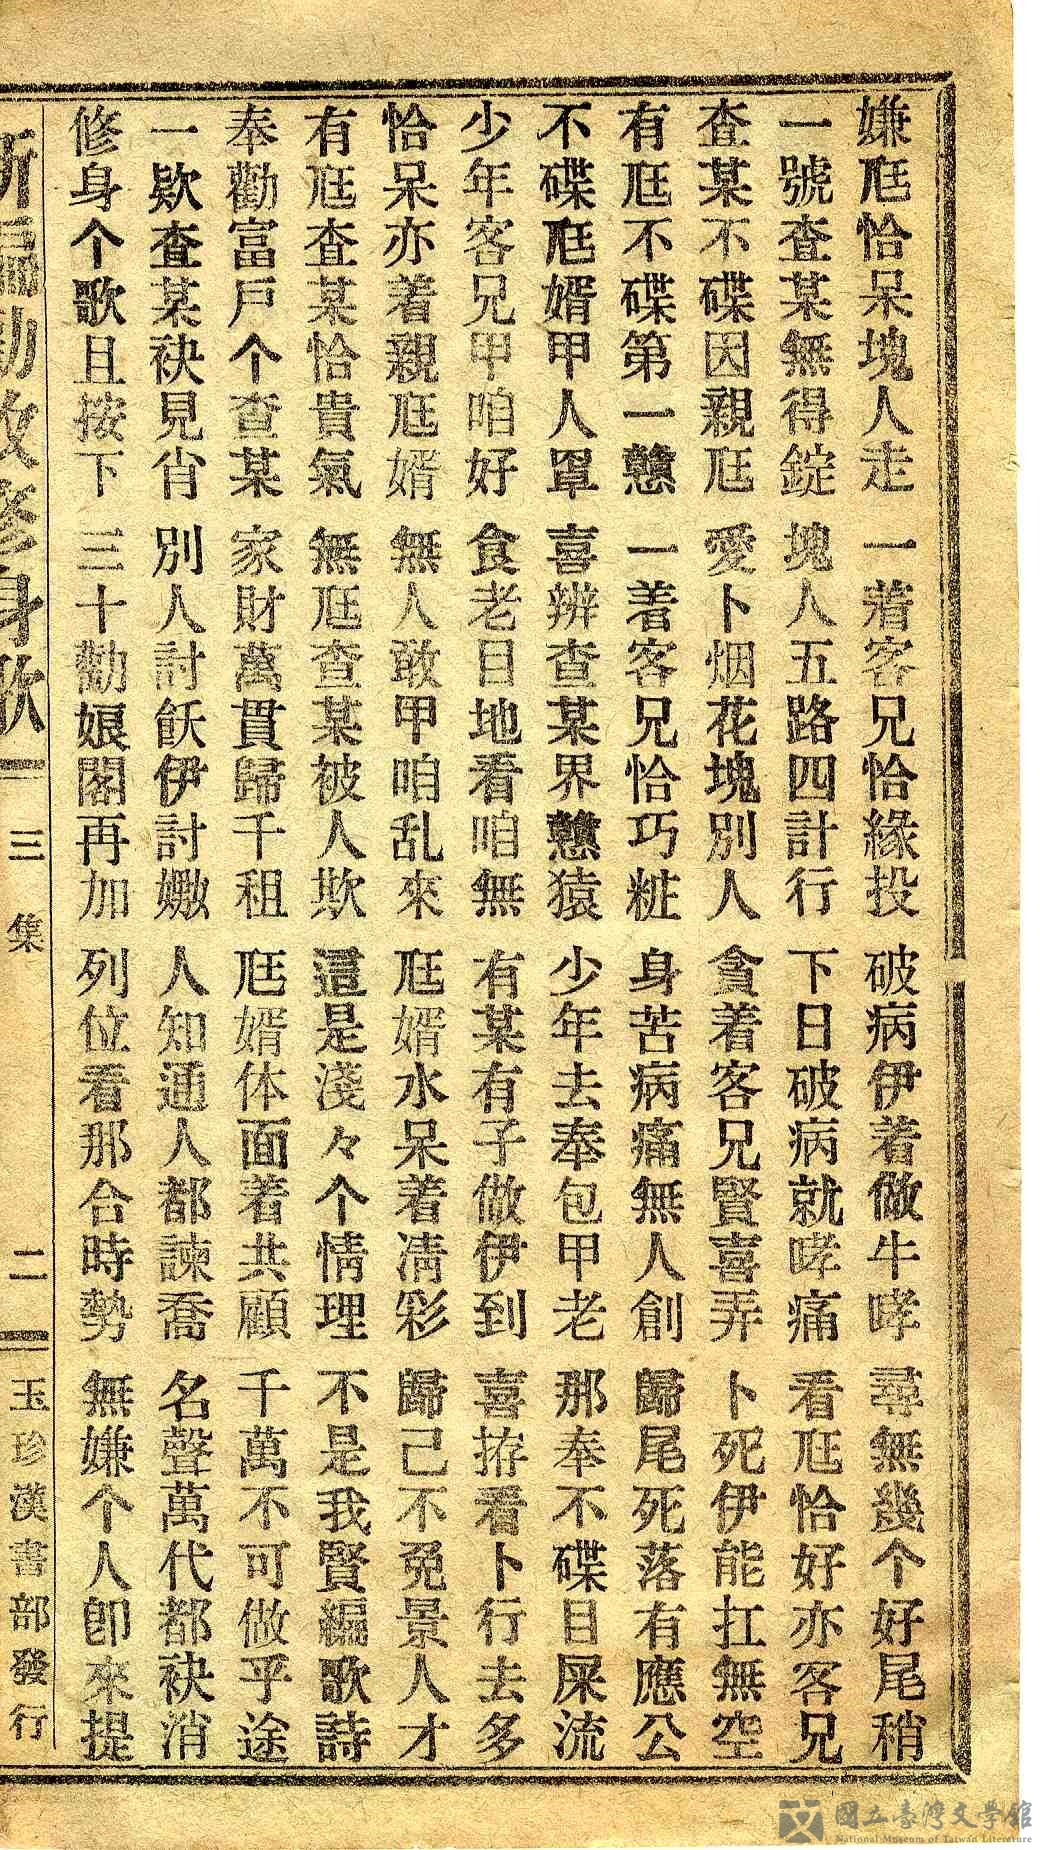 嫌尫恰呆塊人走 一着客兄恰緣投 破病伊着做牛哮 尋無幾个好尾稍
一號查某無得錠 塊人五路四計行 下日破病就哮痛 看尫恰好亦客兄
查某不碟因親尫 愛卜烟花塊別人 貪着客兄賢喜弄 卜死伊能扛無空
有尫不碟第一戇 一着客兄恰巧粧 身苦病痛無人創 歸尾死落有應公
不碟尫婿甲人罩 喜辨查某界戇猿 少年去奉包甲老 那奉不碟目屎流
少年客兄甲咱好 食老目地看咱無 有某有子做伊到 喜拵看卜行去多
恰呆亦着親尫婿 無人敢甲咱乱來 尫婿水呆着凊彩 歸己不免景人才
有尫查某恰貴氣 無尫查某被人欺 這是淺々个情理 不是我賢編歌詩
奉勸富戶个查某 家財萬貫歸千租 尫婿体面着共顧 千萬不可做乎途
一欵查某袂見肖 別人討飫伊討嬓 人知通人都諫喬 名聲萬代都袂消
修身个歌且按下 三十勸娘閣再加 列位看那合時勢 無嫌个人卽來提
新編勸改修身歌 三集 二 玉珍漢書部發行
國立臺灣文學館
National Museum of Taiwan Literature